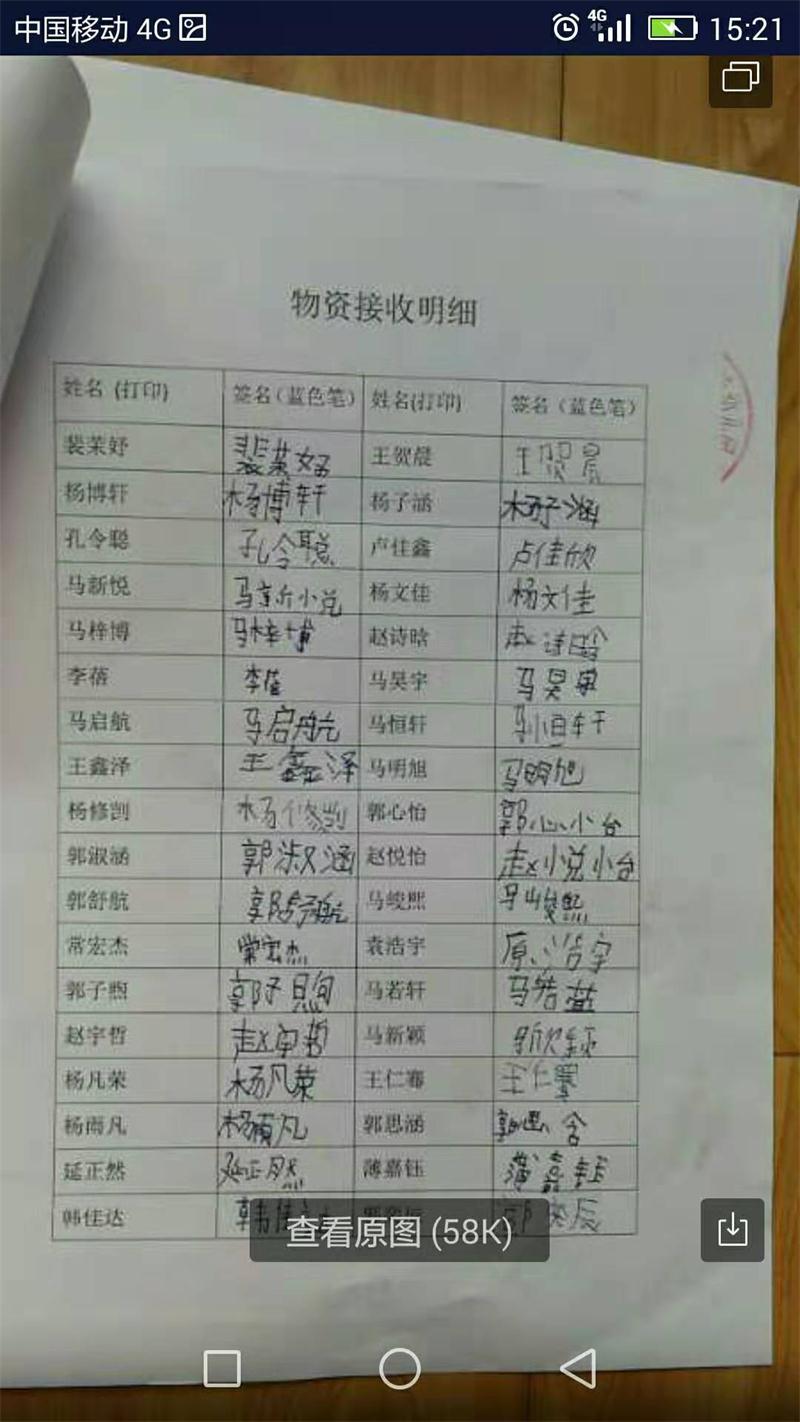 中国移动 4G 4G 15:21
物资接收明细
姓名 (打印) 签名（蓝色笔） 姓名(打印) 签名（蓝色笔）
裴茉妤 裴茉妤 王贺晨 王贺晨
杨博轩 杨博轩 杨子涵 杨子涵
孔令聪 孔令聪 卢佳鑫 卢佳欣
马新悦 马新悦 杨文佳 杨文佳
马梓博 马梓博 赵诗晗 赵诗晗
李蓓 李蓓 马昊宇 马昊
马启航 马启航 马恒轩 马恒轩
王鑫泽 王鑫泽 马明旭 马明旭
杨修凯 杨修 郭心怡 郭心怡
郭淑涵 郭淑涵 赵悦怡 赵悦怡
郭舒航 郭舒航 马峻熙 马峻熙
常宏杰 常宏杰 袁浩宇 原浩宇
郭子煦 郭子 马若轩 马
赵宇哲 赵宇哲 马新颖
杨凡荣 杨凡荣 王仁骞 王仁
杨雨凡 杨雨凡 郭思涵 郭思
延正然 延正然 薄嘉钰 薄嘉钰
韩佳达 韩佳
查看原图 (58K)